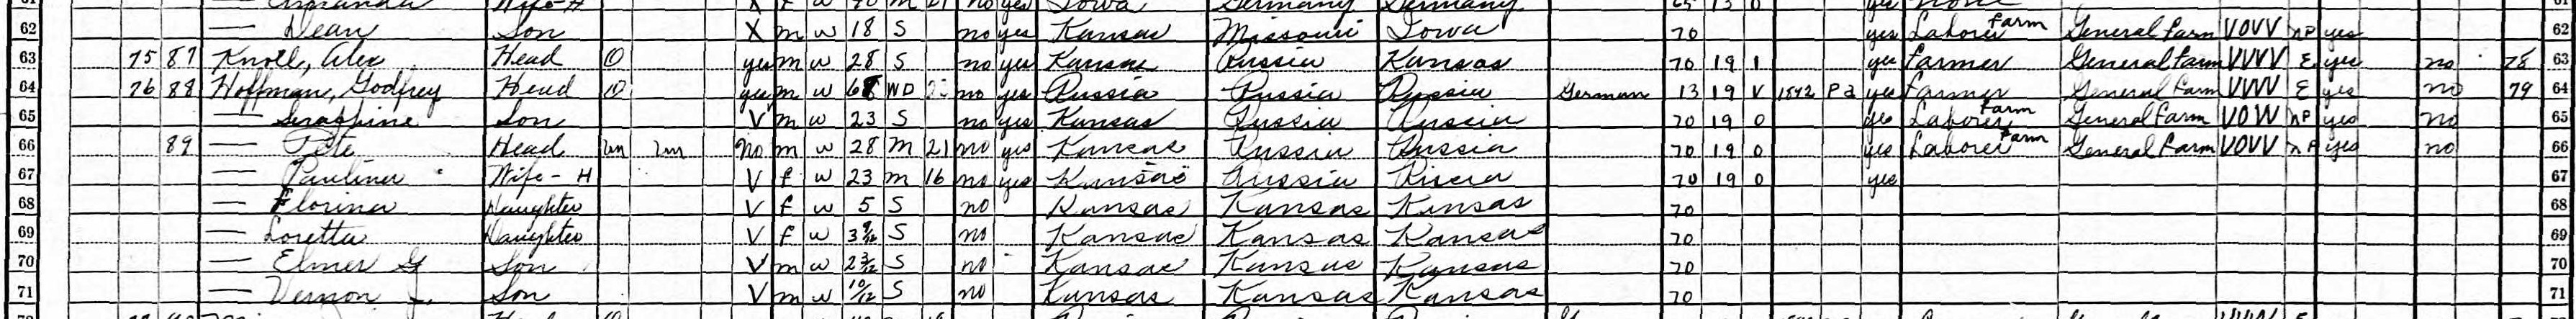 61 Wife-H X f w 40 m 21 no yes Iowa Germany Germany 65 13 0 yes none 61
62 — Dean Son X m w 18 S no yes Kansas Missouri Iowa 70 yes Laborer Farm General Farm VOVV nP yes 62
63 75 87 Knoll, Alex Head O yes m w 28 S no yes Kansas Russia Kansas 70 19 1 yes Farmer General Farm VVVV E yes no 78 63
64 76 88 Hoffman, Godfrey Head O yes m w WD no yes Russia Russia Russia German 13 19 V 1892 Pa yes Farmer General Farm VVVV E yes no 79 64
65 — Seraphine Son V m w 23 S no yes Kansas Russia Russia 70 19 0 yes Laborer Farm General Farm VOVV nP yes no 65
66 89 — Pete Head No m w 28 m 21 no yes Kansas Russia Russia 70 19 0 yes Laborer Farm General Farm VOVV nP yes no 66
67 — Pauliner Wife-H V f w 23 m 16 no yes Kansas Russia Russia 70 19 0 yes 67
68 — Florina Daughter V f w 5 S no Kansas Kansas Kansas 70 68
69 — Loretta Daughter V f w 3 9/12 S no Kansas Kansas Kansas 70 69
70 — Elmer G Son V m w 2 3/12 S no Kansas Kansas Kansas 70 70
71 — Vernon J. Son V m w 10/12 S no Kansas Kansas Kansas 70 71